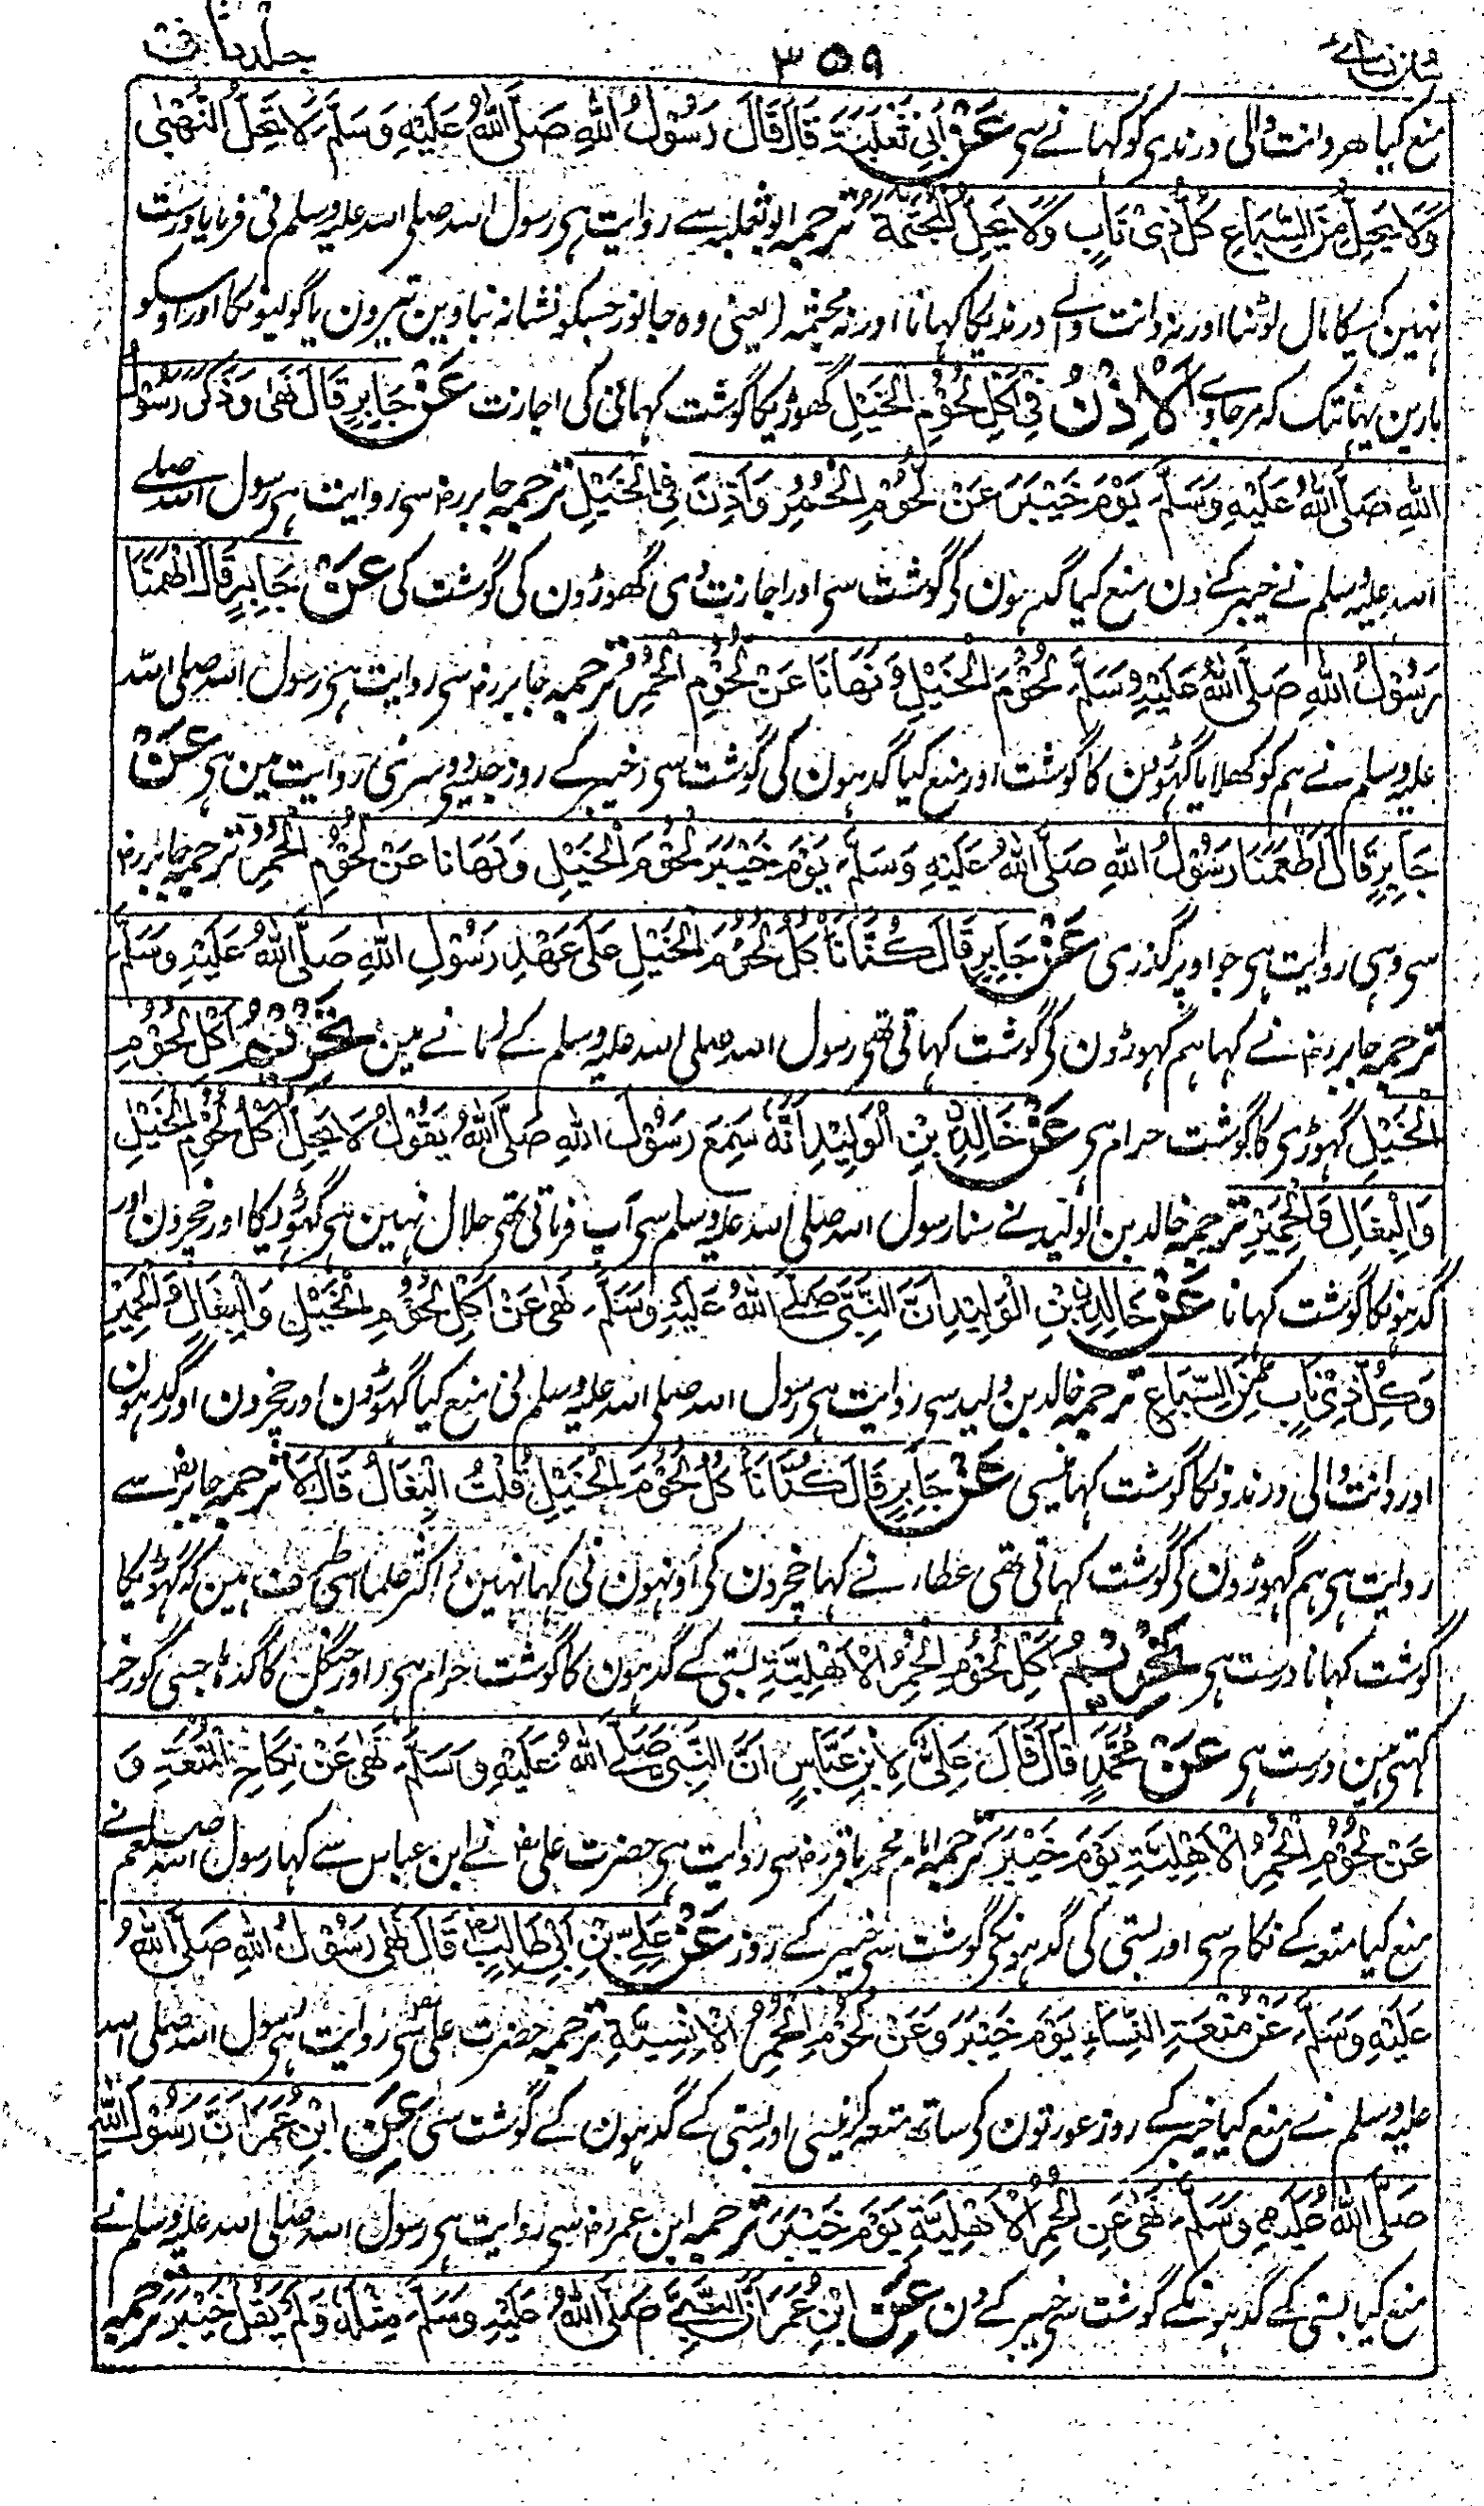 سنن نسائے ۳۵۹ جلد ثالث
منع کیا ہر دانت والی درندی کو کہانے سی عَنْ اَبِیْ ثَعْلَبَةَ قَالَ قَالَ رَسُوْلُ اللّٰهِ صَلَّی اللّٰهُ عَلَيْهِ وَسَلَّمَ لَا يَحِلُّ النُّهْبٰی
وَلَا يَحِلُّ مِنَ السِّبَاعِ كُلُّ ذِیْ نَابٍ وَلَا يَحِلُّ الْمُجَثَّمَةُ ترجمہ ابو ثعلبہ سے روایت ہی رسول اللہ صلی اللہ علیہ وسلم نی فرمایا درست
نہین کسیکا مال لوٹنا اور نہ دانت والے درندیکا کہانا اور نہ مجثمہ (یعنی وہ جانور جسکو نشانہ بناوین تیرون یا گولیونکا اور اوسکو
مارین یہانتک کہ مرجاوے اَلْاِذْنُ فِیْ اَكْلِ لُحُوْمِ الْخَيْلِ گھوڑیکا گوشت کہانی کی اجازت عَنْ جَابِرٍ قَالَ نَهٰی وَذَكَرَ رَسُوْلَ
اللّٰهِ صَلَّی اللّٰهُ عَلَيْهِ وَسَلَّمَ يَوْمَ خَيْبَرَ عَنْ لُحُوْمِ الْحُمُرِ وَاَذِنَ فِی الْخَيْلِ ترجمہ جابر رض سی روایت ہی رسول اللہ صلے
اللہ علیہ وسلم نے خیبر کے دن منع کیا گدہون کی گوشت سی اور اجازت دی گھوڑون کی گوشت کی عَنْ جَابِرٍ قَالَ اَطْعَمَنَا
رَسُوْلُ اللّٰهِ صَلَّی اللّٰهُ عَلَيْهِ وَسَلَّمَ لُحُوْمَ الْخَيْلِ وَنَهَانَا عَنْ لُحُوْمِ الْحُمُرِ ترجمہ جابر رض سی روایت ہی رسول اللہ صلی اللہ
علیہ وسلم نے ہم کو کھلایا گہوڑون کا گوشت اور منع کیا گدہون کی گوشت سی (خیبر کے روز جیسی دوسری روایت مین ہی عَنْ
جَابِرٍ قَالَ اَطْعَمَنَا رَسُوْلُ اللّٰهِ صَلَّی اللّٰهُ عَلَيْهِ وَسَلَّمَ يَوْمَ خَيْبَرَ لُحُوْمَ الْخَيْلِ وَنَهَانَا عَنْ لُحُوْمِ الْحُمُرِ ترجمہ جابر رض
سی وہی روایت ہی جو اوپر گذری عَنْ جَابِرٍ قَالَ كُنَّا نَاْكُلُ لُحُوْمَ الْخَيْلِ عَلٰی عَهْدِ رَسُوْلِ اللّٰهِ صَلَّی اللّٰهُ عَلَيْهِ وَسَلَّمَ
ترجمہ جابر رض نے کہا ہم گہوڑون کی گوشت کہاتی تھی رسول اللہ صلی اللہ علیہ وسلم کے زمانے مین تَحْرِيْمُ اَكْلِ لُحُوْمِ
الْخَيْلِ گہوڑی کا گوشت حرام ہی عَنْ خَالِدِ بْنِ الْوَلِيْدِ اَنَّهٗ سَمِعَ رَسُوْلَ اللّٰهِ صَلَّی اللّٰهُ يَقُوْلُ لَا يَحِلُّ اَكْلُ لُحُوْمِ الْخَيْلِ
وَالْبِغَالِ وَالْحَمِيْرِ ترجمہ خالد بن الولید نے سنا رسول اللہ صلی اللہ علیہ وسلم سی آپ فرماتی تھی حلال نہین ہی گہوڑیکا اور خچرون اور
گدہونکا گوشت کہانا عَنْ خَالِدِ بْنِ الْوَلِيْدِ اَنَّ النَّبِیَّ صَلَّے اللّٰهُ عَلَيْهِ وَسَلَّمَ نَهٰی عَنْ اَكْلِ لُحُوْمِ الْخَيْلِ وَالْبِغَالِ وَالْحَمِيْرِ
وَكُلِّ ذِیْ نَابٍ مِّنَ السِّبَاعِ ترجمہ خالد بن ولید سی روایت ہی رسول اللہ صلی اللہ علیہ وسلم نی منع کیا گہوڑون اور خچرون اور گدہون
اور دانت والی درندونکا گوشت کہانیسی عَنْ جَابِرٍ قَالَ كُنَّا نَاْكُلُ لُحُوْمَ الْخَيْلِ قُلْتُ الْبِغَالُ قَالَ لَا ترجمہ جابر رض سے
روایت ہی ہم گہوڑون کی گوشت کہاتی تھی عطاء نے کہا خچرون کی اونہون نی کہا نہین اکثر علما اسی طرف ہین کہ گہوڑیکا
گوشت کہانا درست ہی تَحْرِيْمُ اَكْلِ لُحُوْمِ الْحُمُرِ الْاَهْلِيَّةِ بستی کے گدہون کا گوشت حرام ہی (اور جنگل کا گدہا جسی گورخر
کہتی ہین درست ہی عَنْ مُحَمَّدٍ قَالَ قَالَ عَلِیٌّ لِابْنِ عَبَّاسٍ اَنَّ النَّبِیَّ صَلَّے اللّٰهُ عَلَيْهِ وَسَلَّمَ نَهٰی عَنْ نِكَاحِ الْمُتْعَةِ وَ
عَنْ لُحُوْمِ الْحُمُرِ الْاَهْلِيَّةِ يَوْمَ خَيْبَرَ ترجمہ امام محمد باقر رض سی روایت ہی حضرت علی رض نے ابن عباس سے کہا رسول اللہ صلعم نے
منع کیا متعہ کے نکاح سی اور بستی کی گدہونکی گوشت سی خیبر کے روز عَنْ عَلِیِّ بْنِ اَبِیْ طَالِبٍ قَالَ نَهٰی رَسُوْلُ اللّٰهِ صَلَّی اللّٰهُ
عَلَيْهِ وَسَلَّمَ عَنْ مُتْعَةِ النِّسَاءِ يَوْمَ خَيْبَرَ وَعَنْ لُحُوْمِ الْحُمُرِ الْاِنْسِيَّةِ ترجمہ حضرت علی رض سی روایت ہی رسول اللہ صلی اللہ
علیہ وسلم نے منع کیا خیبر کے روز عورتون کی ساتھ متعہ کرنیسی اور بستی کے گدہون کے گوشت سی عَنِ ابْنِ عُمَرَ اَنَّ رَسُوْلَ اللّٰهِ
صَلَّی اللّٰهُ عَلَيْهِ وَسَلَّمَ نَهٰی عَنِ الْحُمُرِ الْاَهْلِيَّةِ يَوْمَ خَيْبَرَ ترجمہ ابن عمر رض سی روایت ہی رسول اللہ صلی اللہ علیہ وسلم نے
منع کیا بستی کے گدہونکے گوشت سی خیبر کے دن عَنِ ابْنِ عُمَرَ اَنَّ النَّبِیَّ صَلَّی اللّٰهُ عَلَيْهِ وَسَلَّمَ مِثْلَهٗ وَلَمْ يَقُلْ خَيْبَرَ ترجمہ